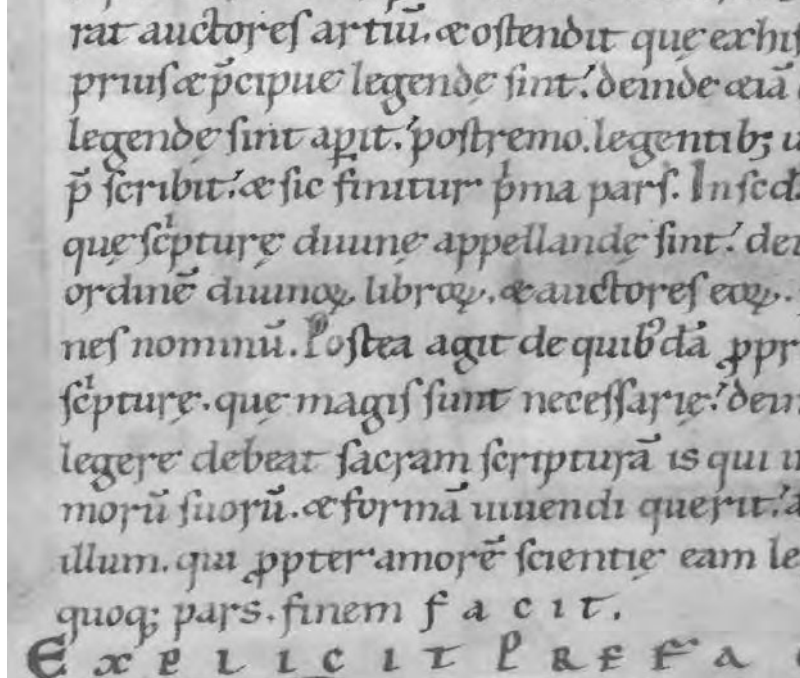 rat auctores artiū. & ostendit quę ex his
prius & p̄cipue legendę sint. deinde &iā
legendę sint aꝑit. postremo. legentibꝫ u
p̄scribit. & sic finitur pͥma pars. In scd
quę scͥpturę diuinę appellandę sint. dei
ordinē diuinoꝝ libroꝝ. & auctores eoꝝ.
nes nominū. Postea agit de quibꝰdā ꝓpr
scͥpturę. quę magis sunt necessarię. dein
legere debeat sacram scripturā is qui in
morū suorū. & formā uiuendi querit. a
illum. qui ꝓpter amorē scientię eam le
quoqꝫ pars. finem facit.
EXPLICIT PREFA